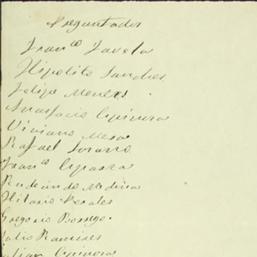 Preguntados
Franco Favela
Hipolito Sanches
Felipe Meneses
Anastacio Espinosa
Viviano Mesa
Rafael Lozano
Franco Esparza
de Medina
Hilario Rosales
Gregorio Borrego
Julio Ramires
Julian Espinosa